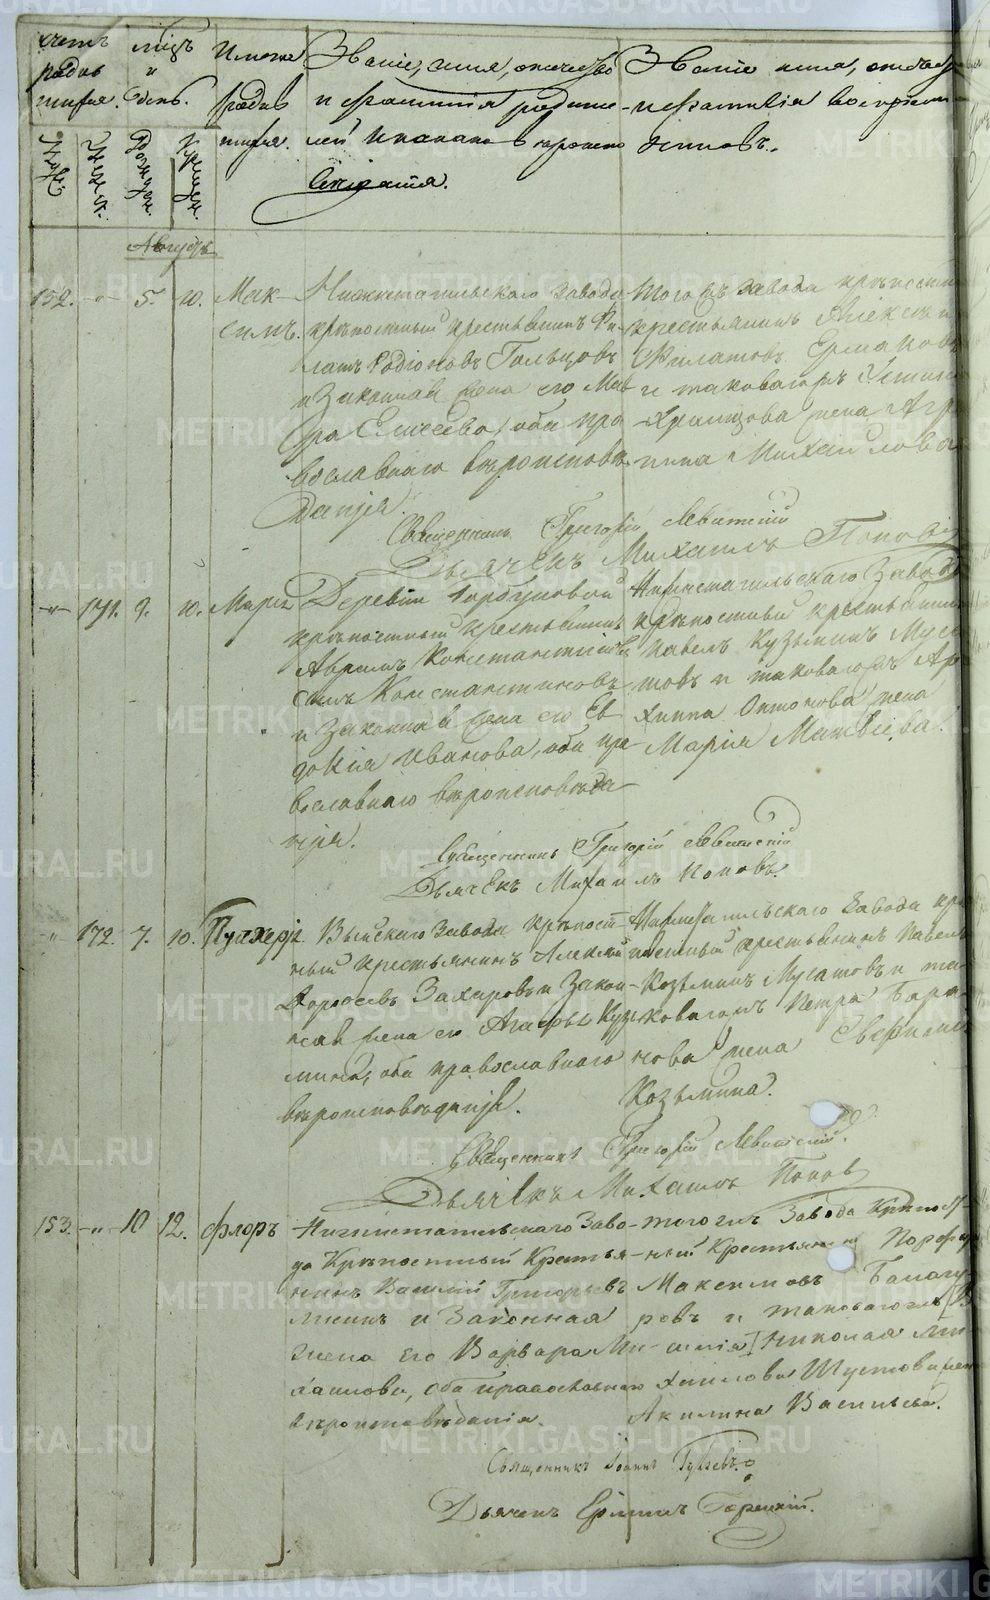 Счетъ родившихся.
Муж. Женск.
Мѣсяцъ и день.
Рожден. Крещен.
Имена родившихся.
Званіе, имя, отчество
и фамилія родите-
лей и какого вѣроиспо
вѣданія.
Званіе имя, отчес
и фамилія воспріем-
никовъ.
Августъ
152. -"- 5. 10. Мак-
симъ.
Нижнетагильскаго завода
крѣпостный крестьянинъ Фи-
латъ Родіоновъ Гальцовъ
и Законная жена его Мав
ра Елисеева, оба пра
вославнаго вѣроисповѣ-
данія.
Тогожъ завода крѣпостн
крестьянинъ Алексѣй
Филатовъ Ермаковъ
и таковагожъ
Храмцова жена Агри
пина Михайлова
Священникъ Григорій Левитскій
Дьячекъ Михаилъ Поповъ
-"- 171. 9. 10. Марія
Деревни Горбуновой
крѣпостный крестьянинъ
Константиновъ
и Законная жена его Ев
докія Иванова, оба пра
вославнаго вѣроисповѣда
нія.
Нижнетагильскаго завода
крѣпостный крестьянин
Павелъ Кузьминъ Муса
товъ и таковагожъ Ар
хиппа Антонова жена
Марія Матвѣева.
Священникъ Григорій Левитскій
Дьячекъ Михаилъ Поповъ.
-"- 172. 7. 10. Пулхерія
Выйскаго завода крѣпост
ный крестьянинъ Алексѣй
Дороѳеевъ Захаровъ и Закон-
ная жена его Агафья Кузь
мина, оба православнаго
вѣроисповѣданія.
Нижнетагильскаго завода крѣ
постный крестьянинъ Павелъ
Козьминъ Мусатовъ и та-
ковагожъ Петра Бара-
нова жена
Козьмина.
Священникъ Григорій Левитскій.
Дьячекъ Михаилъ Поповъ
153. -"- 10 12. Флоръ
Нижнетагильскаго Заво-
да Крѣпостный Крестья-
нинъ Василій Григорьевъ
и Законная
жена его Варвара Ми-
хаилова, оба православнаго
вѣроисповѣданія.
тогожъ Завода Крѣпост-
ный Крестьянинъ Порфир
Максимовъ Балагу
ровъ и таковагожъ
Николая Ми-
хаилова Шустова жен
Акилина Васильева.
Священникъ Іоаннъ
Дьячекъ
METRIKI.GASO-URAL.RU